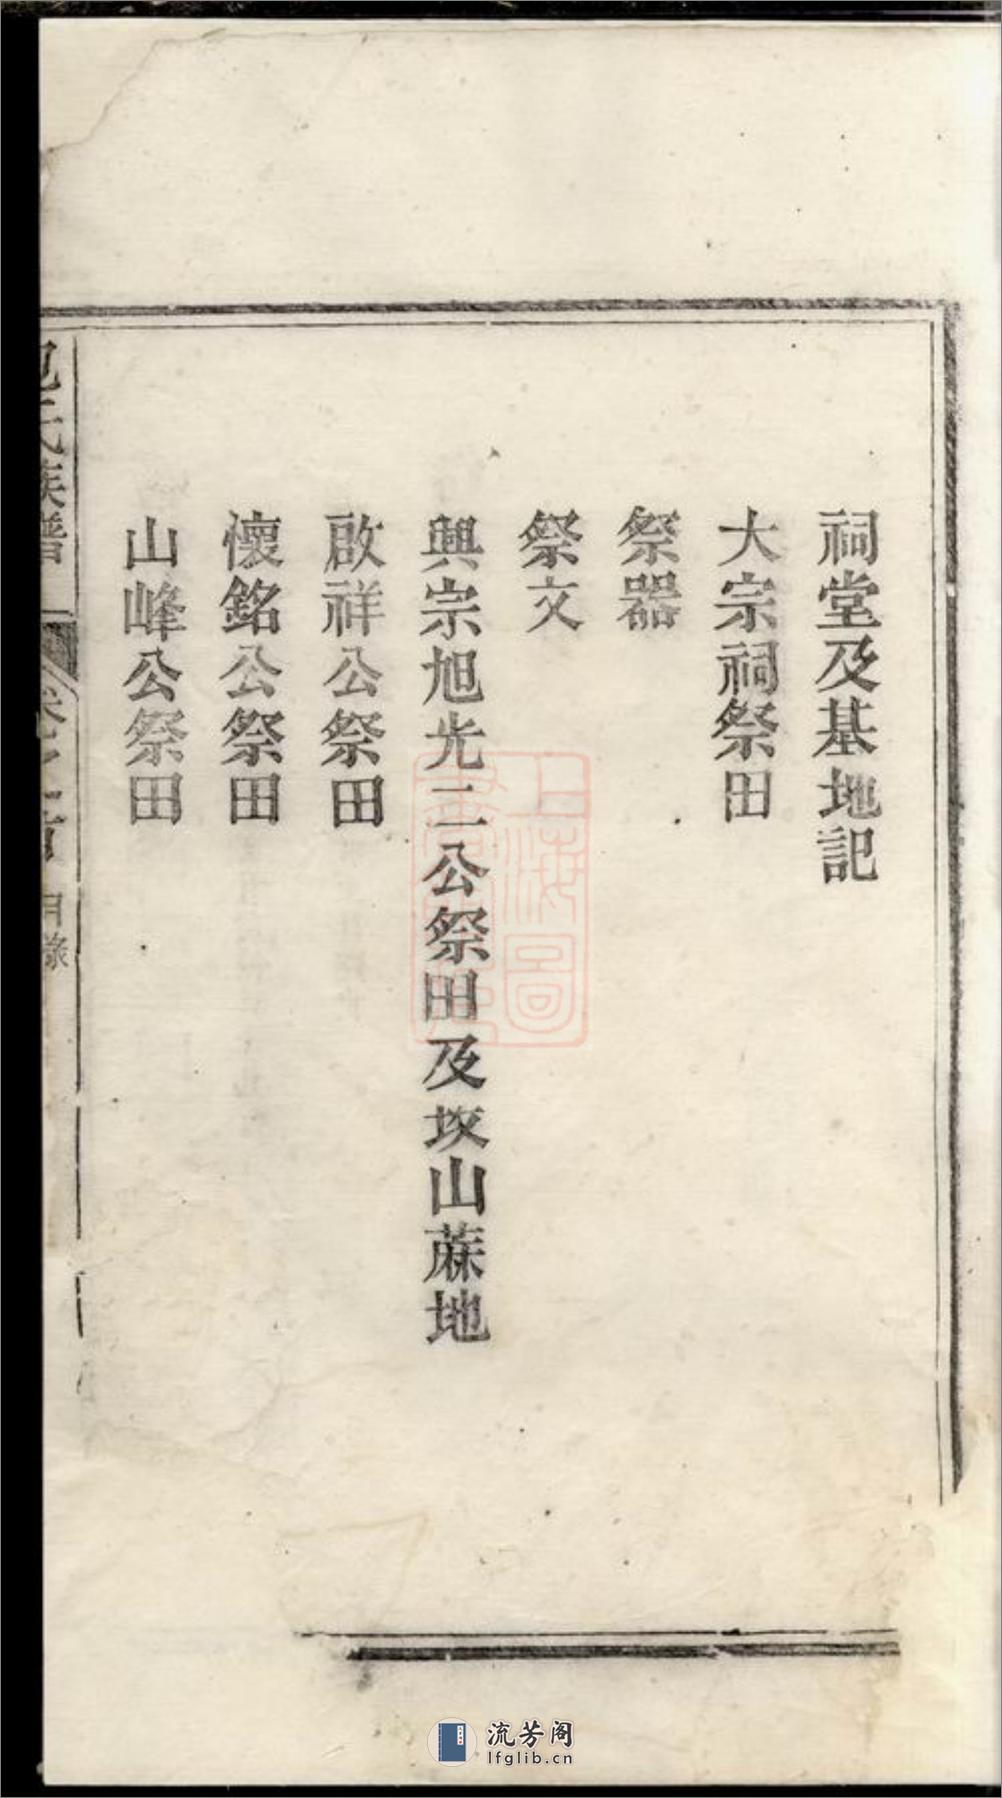 祠堂及基地記
大宗祠祭田
祭器
祭文
興宗旭光二公祭田及坟山蔴地
啟祥公祭田
懷銘公祭田
山峰公祭田
氏族譜 卷之首 目錄
上海圖
流芳阁
lfglib.cn